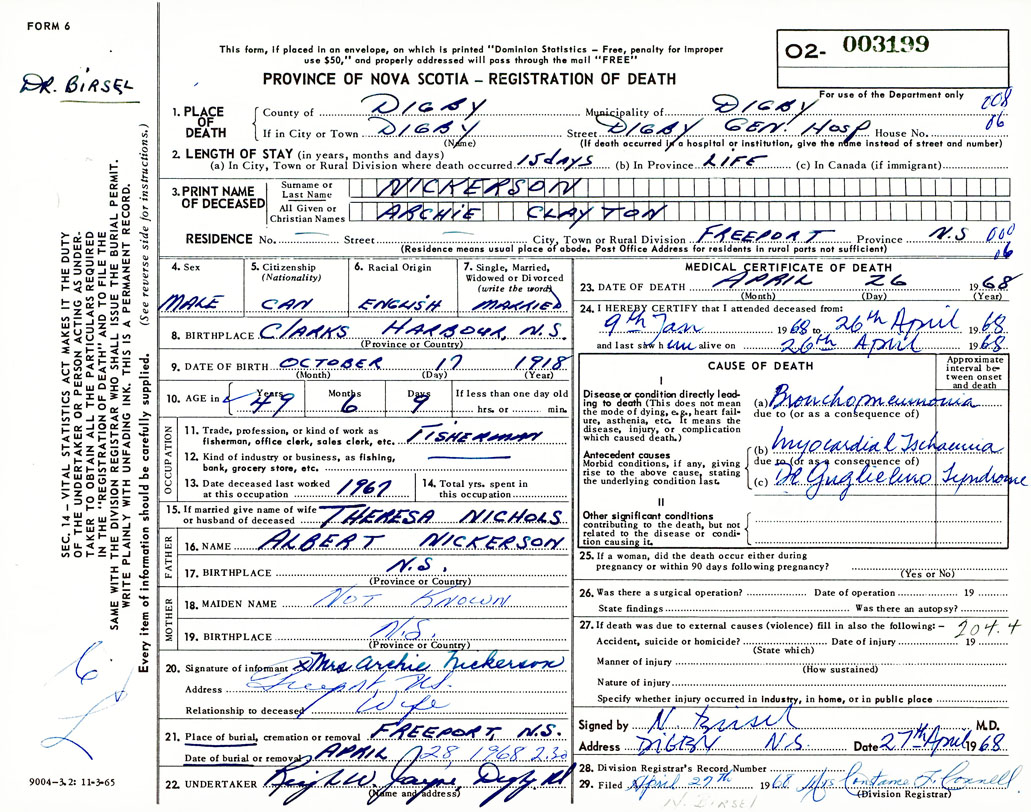 FORM 6
This form, if placed in an envelope, on which is printed "Dominion Statistics – Free, penalty for improper
use $50," and properly addressed will pass through the mail "FREE"
02- 003199
DR. BIRSEL
PROVINCE OF NOVA SCOTIA – REGISTRATION OF DEATH
For use of the Department only
208
06
1. PLACE OF DEATH County of DIGBY Municipality of DIGBY
If in City or Town DIGBY Street DIGBY GEN. HOSP House No.
(Name) (If death occurred in a hospital or institution, give the name instead of street and number)
2. LENGTH OF STAY (in years, months and days)
(a) In City, Town or Rural Division where death occurred 15 days (b) In Province LIFE (c) In Canada (if immigrant)
3. PRINT NAME OF DECEASED
Surname or Last Name NICKERSON
All Given or Christian Names ARCHIE CLAYTON
RESIDENCE No. Street City, Town or Rural Division FREEPORT Province N.S 000
(Residence means usual place of abode. Post Office Address for residents in rural parts not sufficient) 06
SEC. 14 – VITAL STATISTICS ACT MAKES IT THE DUTY
OF THE UNDERTAKER OR PERSON ACTING AS UNDER-
TAKER TO OBTAIN ALL THE PARTICULARS REQUIRED
IN THE "REGISTRATION OF DEATH" AND TO FILE THE
SAME WITH THE DIVISION REGISTRAR WHO SHALL ISSUE THE BURIAL PERMIT.
WRITE PLAINLY WITH UNFADING INK. THIS IS A PERMANENT RECORD.
Every item of information should be carefully supplied. (See reverse side for instructions.)
4. Sex MALE
5. Citizenship (Nationality) CAN
6. Racial Origin ENGLISH
7. Single, Married, Widowed or Divorced (write the word) MARRIED
8. BIRTHPLACE CLARKS HARBOUR, N.S.
(Province or Country)
9. DATE OF BIRTH OCTOBER 17 1918
(Month) (Day) (Year)
10. AGE in Years 49 Months 6 Days 9 If less than one day old
hrs. or min.
OCCUPATION
11. Trade, profession, or kind of work as
fisherman, office clerk, sales clerk, etc. FISHERMAN
12. Kind of industry or business, as fishing,
bank, grocery store, etc.
13. Date deceased last worked
at this occupation 1967
14. Total yrs. spent in
this occupation
15. If married give name of wife
or husband of deceased THERESA NICHOLS
FATHER
16. NAME ALBERT NICKERSON
17. BIRTHPLACE N.S.
(Province or Country)
MOTHER
18. MAIDEN NAME NOT KNOWN
19. BIRTHPLACE N.S.
(Province or Country)
20. Signature of informant x Mrs Archie Nickerson
Address Freeport N.S.
Relationship to deceased Wife
21. Place of burial, cremation or removal FREEPORT N.S.
Date of burial or removal APRIL 28, 1968 2.30
22. UNDERTAKER
(Name and address)
MEDICAL CERTIFICATE OF DEATH
23. DATE OF DEATH APRIL 26 1968
(Month) (Day) (Year)
24. I HEREBY CERTIFY that I attended deceased from:
9th Jan 1968 to 26th April 1968
and last saw him alive on 26th April 1968
CAUSE OF DEATH
Approximate interval between onset and death
I
Disease or condition directly lead-
ing to death (This does not mean
the mode of dying, e.g., heart fail-
ure, asthenia, etc. It means the
disease, injury, or complication
which caused death.)
(a) Bronchopneumonia
due to (or as a consequence of)
Antecedent causes
Morbid conditions, if any, giving
rise to the above cause, stating
the underlying condition last.
(b) Myocardial Ischaemia
due to (or as a consequence of)
(c) Di Guglielmo Syndrome
II
Other significant conditions
contributing to the death, but not
related to the disease or condi-
tion causing it.
25. If a woman, did the death occur either during
pregnancy or within 90 days following pregnancy?
(Yes or No)
26. Was there a surgical operation? Date of operation 19
State findings Was there an autopsy?
27. If death was due to external causes (violence) fill in also the following: – 204.4
Accident, suicide or homicide? Date of injury 19
(State which)
Manner of injury
(How sustained)
Nature of injury
Specify whether injury occurred in industry, in home, or in public place
Signed by N. Birsel M.D.
Address DIGBY N.S. Date 27th April 1968
28. Division Registrar's Record Number
29. Filed April 27th 1968 Mrs Constance F. Connell
(Division Registrar)
N. BIRSEL
9004-3.2: 11-3-65